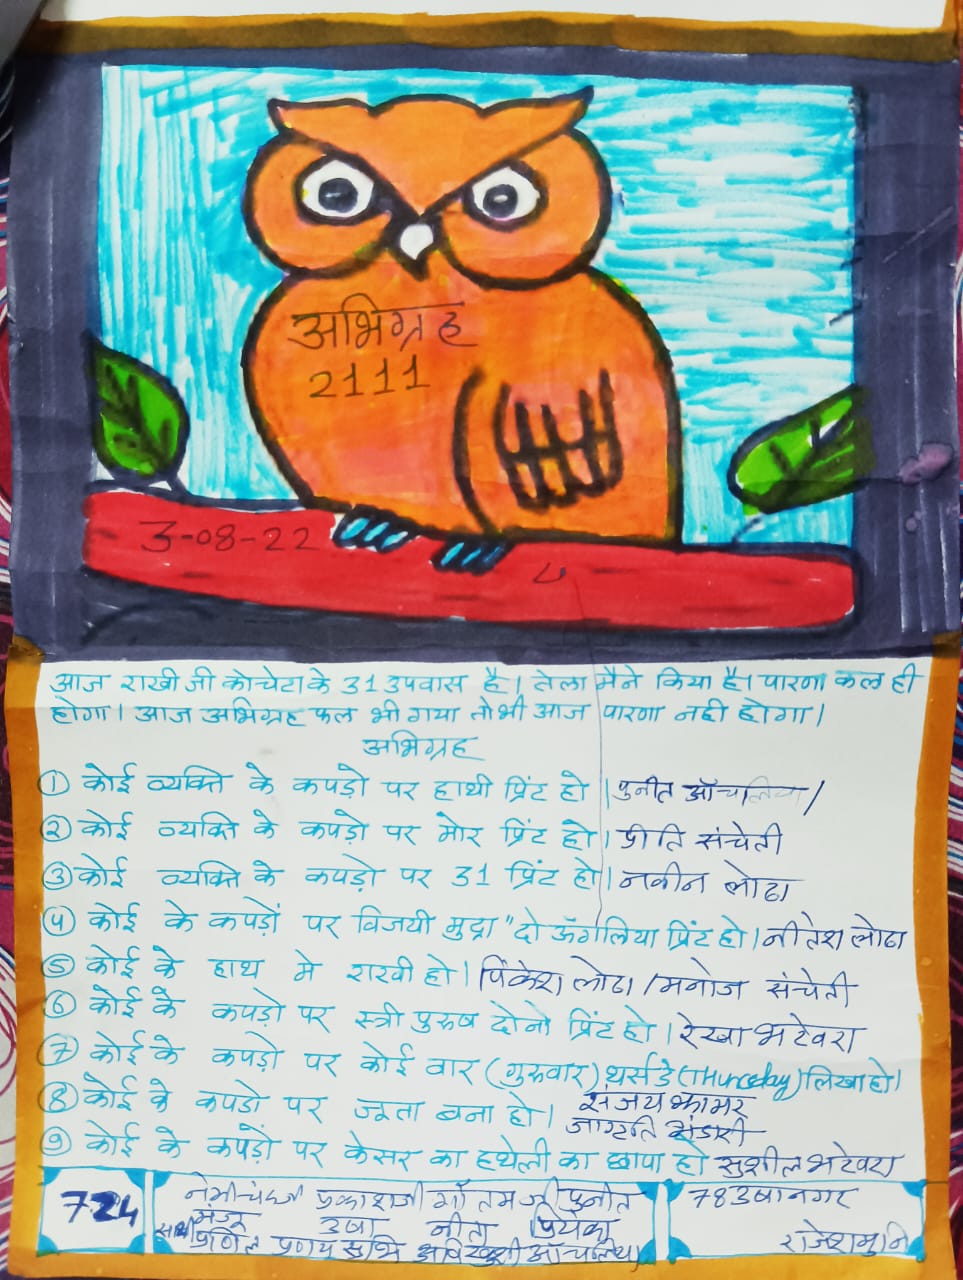 अभिग्रह
2111
3-08-22
आज राखी जी कोचेटा के 31 उपवास है। तेला मैने किया है। पारणा कल ही
होगा। आज अभिग्रह फल भी गया तो भी आज पारणा नही होगा।
अभिग्रह
① कोई व्यक्ति के कपड़ो पर हाथी प्रिंट हो। पुनीत ऑचलिया/
② कोई व्यक्ति के कपड़ो पर मोर प्रिंट हो। प्रीति संचेती
③ कोई व्यक्ति के कपड़ो पर 31 प्रिंट हो। नवीन लोढा
④ कोई के कपड़ों पर विजयी मुद्रा "दो ऊँगलिया प्रिंट हो। नीतेश लोढा
⑤ कोई के हाथ मे राखी हो। पिंकेश लोढा/मनोज संचेती
⑥ कोई के कपड़ो पर स्त्री पुरुष दोनो प्रिंट हो। रेखा भटेवरा
⑦ कोई के कपड़ो पर कोई वार (गुरुवार) थर्सडे (Thursday) लिखा हो।
संजय झामर
⑧ कोई के कपड़ो पर जूता बना हो।
जागृति भंडारी
⑨ कोई के कपड़ों पर केसर का हथेली का छापा हो सुशील भटेवरा
724
नेमीचंदजी प्रकाशजी गौतमजी पुनीत
मंजू उषा नीता प्रियंका
प्रणित प्रणय सुरभि खुशी ऑचलिया
78 उषानगर
राजेशमुनि